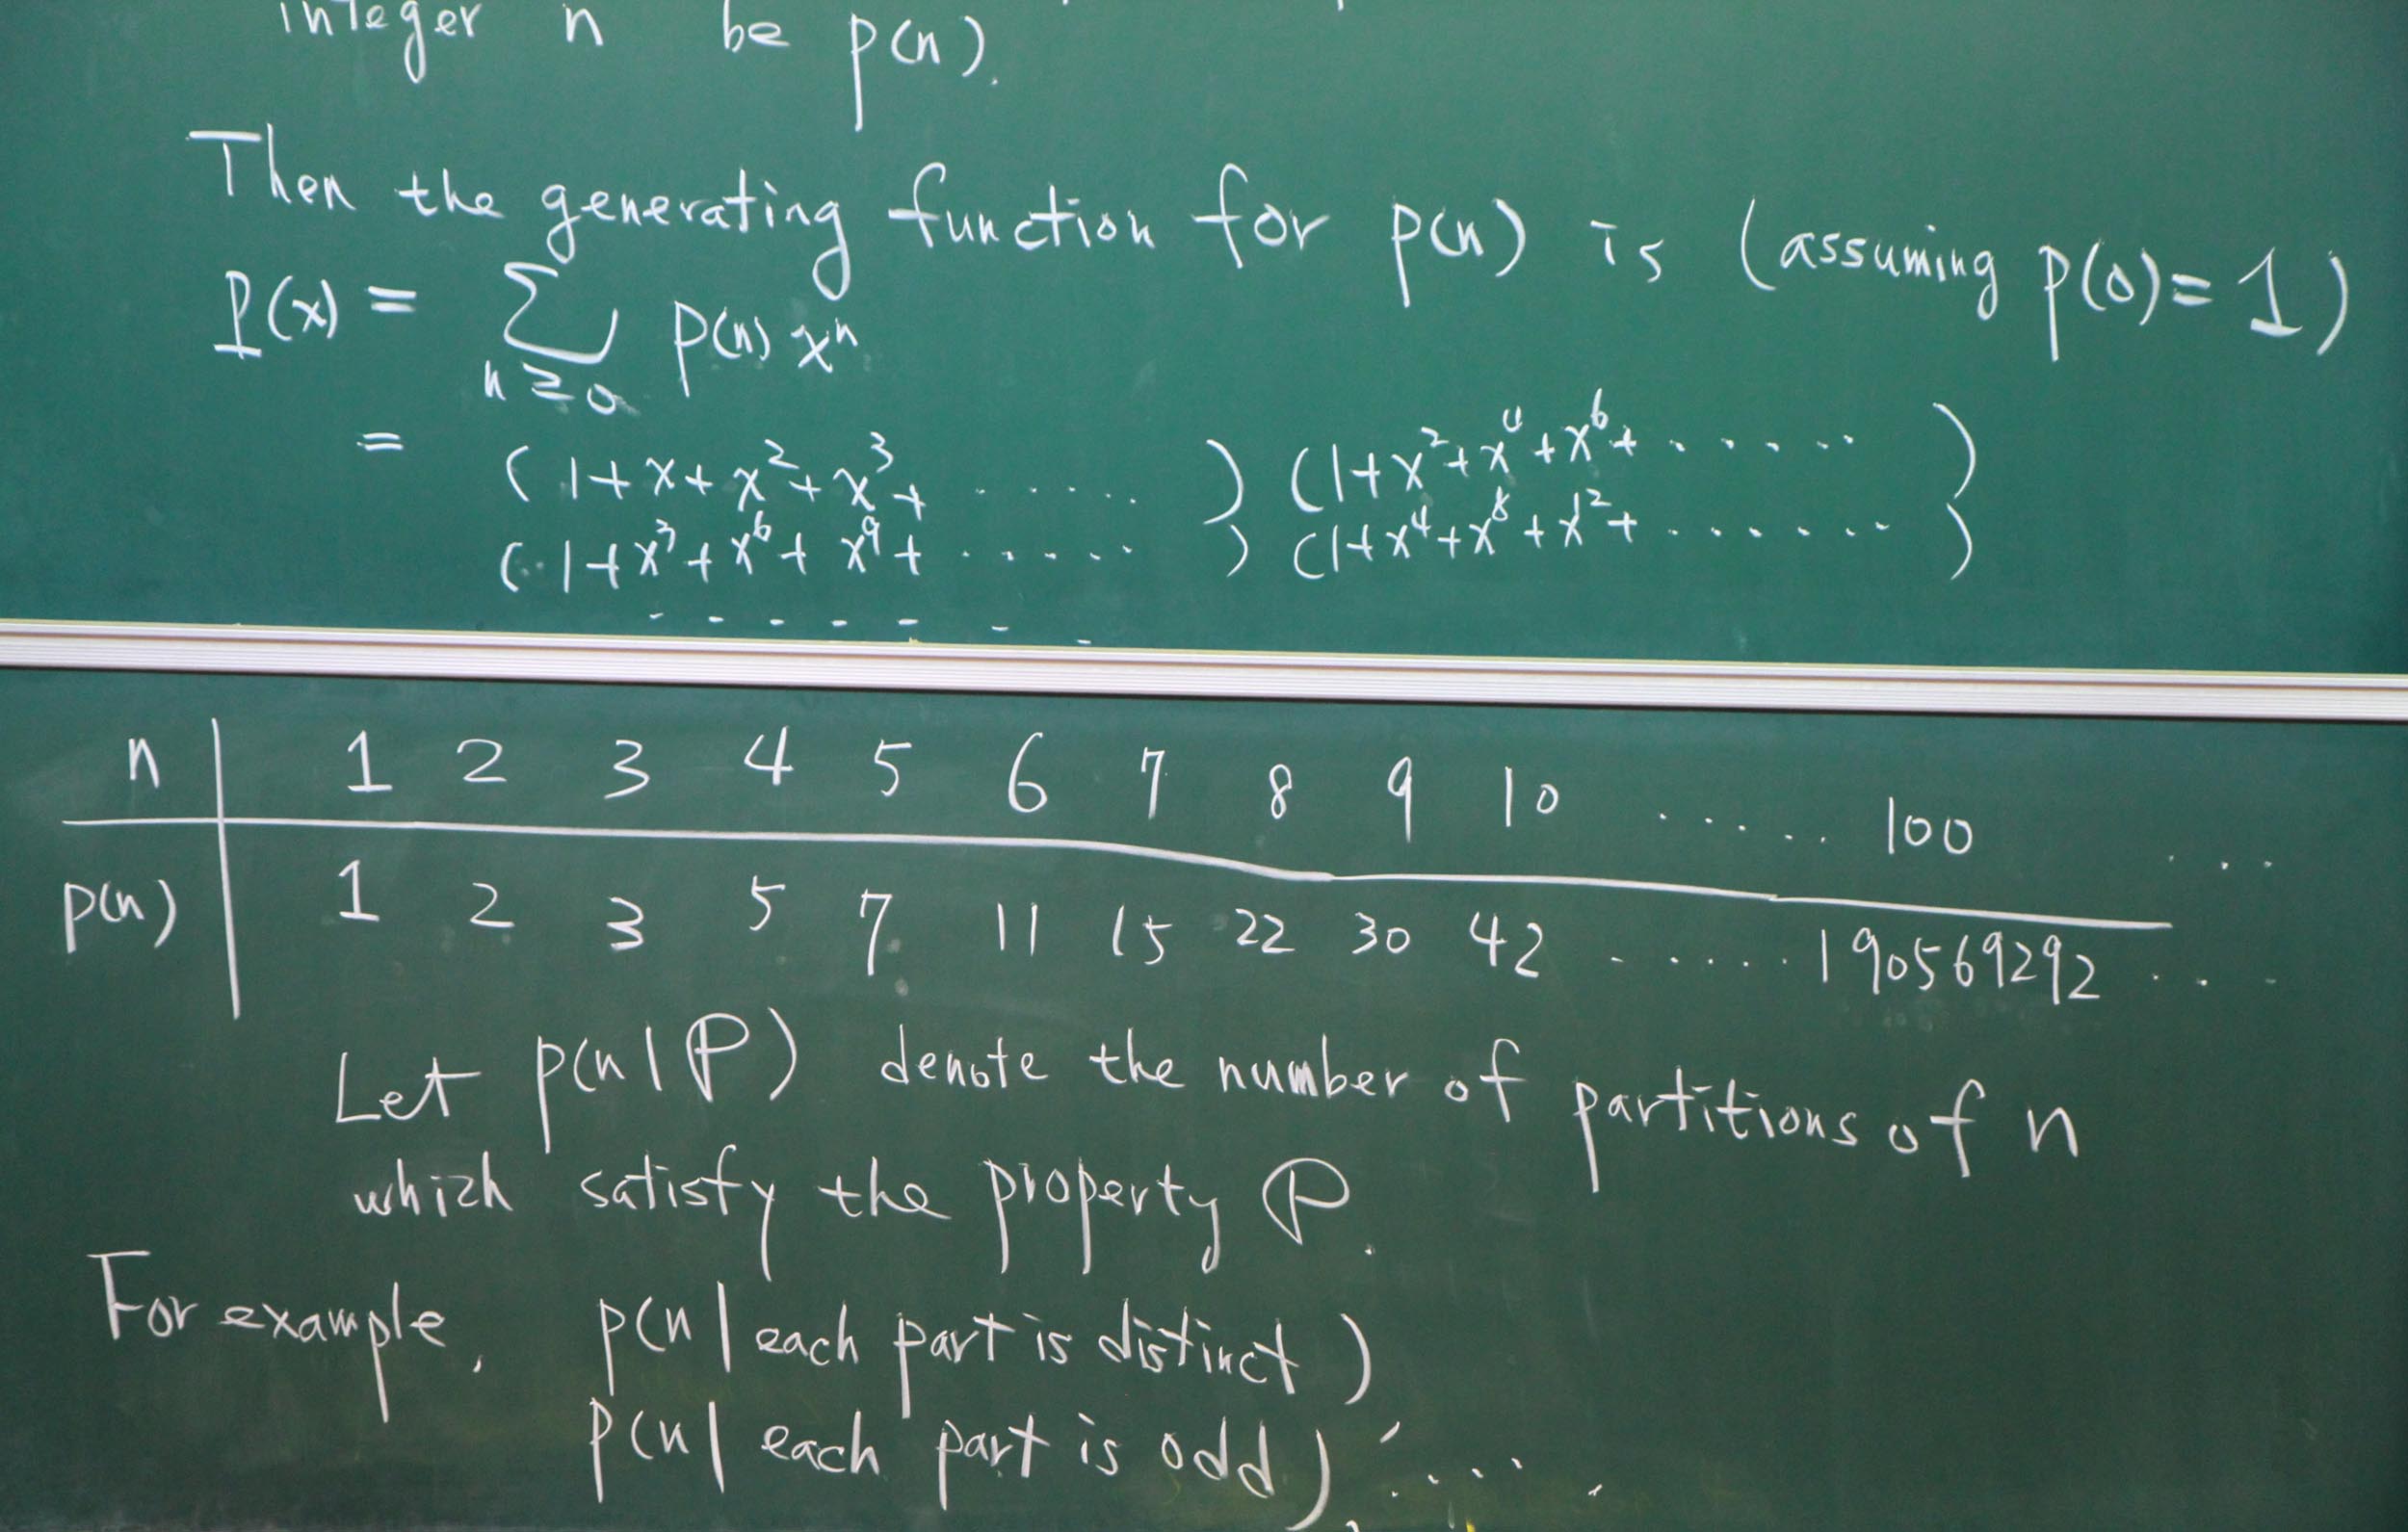 integer n be p(n).
Then the generating function for p(n) is (assuming p(0)=1)
P(x) = ∑ p(n) xⁿ
n≥0
= (1+x+x²+x³+ ......) (1+x²+x⁴+x⁶+ ......)
(1+x³+x⁶+x⁹+ ......) (1+x⁴+x⁸+x¹²+ .......)
- - - - - - -
n | 1 2 3 4 5 6 7 8 9 10 ...... 100 ...
p(n) | 1 2 3 5 7 11 15 22 30 42 ...... 190569292 ...
Let p(n|P) denote the number of partitions of n
which satisfy the property P.
For example, p(n | each part is distinct)
p(n | each part is odd), .....